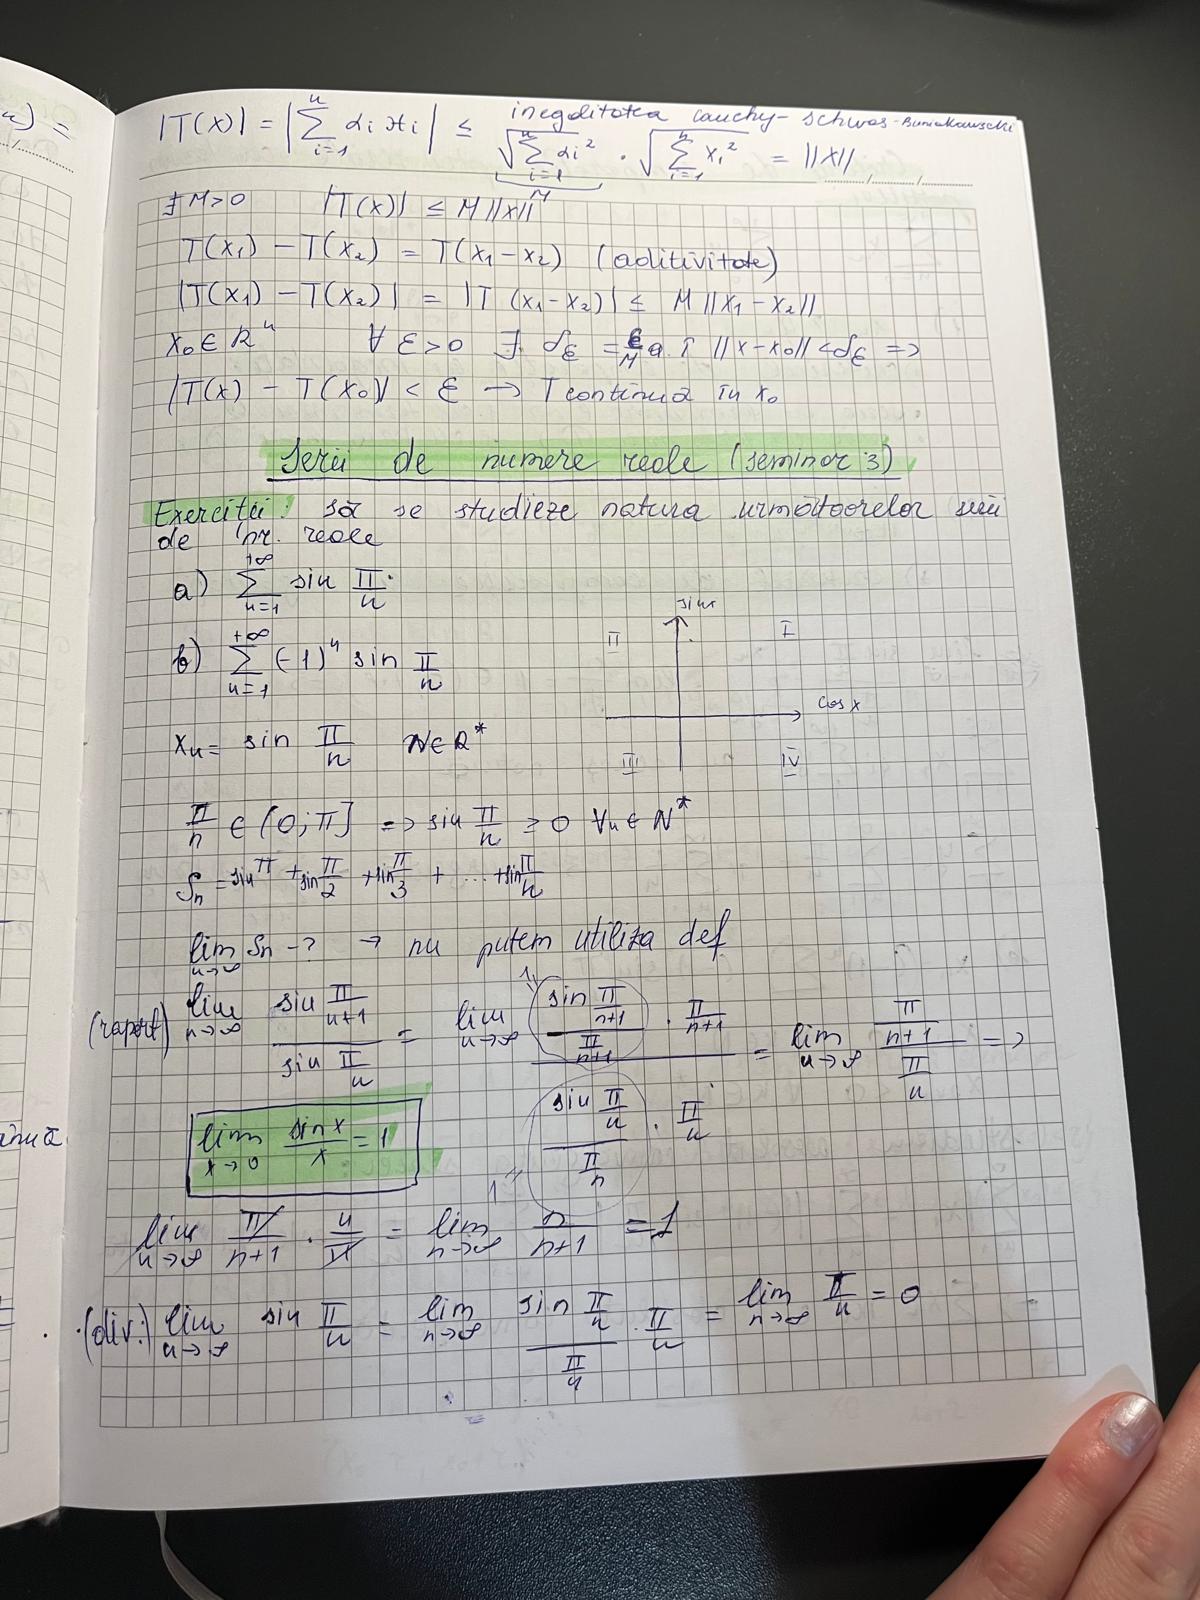 |T(x)| = |∑_{i=1}^{n} αi xi| ≤ √(∑_{i=1}^{n} αi²) · √(∑_{i=1}^{n} xi²) = ||x||
inegalitatea Cauchy-Schwas-Buniakowschi
M
∃ M>0 |T(x)| ≤ M||x||
T(x1) - T(x2) = T(x1-x2) (aditivitate)
|T(x1) - T(x2)| = |T(x1-x2)| ≤ M||x1-x2||
x0 ∈ R^n ∀ ε>0 ∃ δε = ε/M a.î ||x-x0|| < δε =>
|T(x) - T(x0)| < ε → T continuă în x0
Serii de numere reale (seminar 3)
Exerciții: să se studieze natura următoarelor serii
de nr. reale
a) ∑_{n=1}^{+∞} sin π/n
b) ∑_{n=1}^{+∞} (-1)^n sin π/n
sinx
II I
cos x
III IV
xn = sin π/n N∈R*
π/n ∈ (0; π] => sin π/n ≥ 0 ∀n∈N*
Sn = sin π + sin π/2 + sin π/3 + ... + sin π/n
lim_{n→∞} Sn -? → nu putem utiliza def
(raport) lim_{n→∞} (sin π/(n+1))/(sin π/n) = lim_{n→∞} ((sin π/(n+1))/(π/(n+1)) · π/(n+1))/((sin π/n)/(π/n) · π/n) = lim_{n→∞} (π/(n+1))/(π/n) =>
1
1
lim_{x→0} sinx/x = 1
lim_{n→∞} π/(n+1) · n/π = lim_{n→∞} n/(n+1) = 1
(div:) lim_{n→∞} sin π/n = lim_{n→∞} (sin π/n)/(π/n) · π/n = lim_{n→∞} π/n = 0